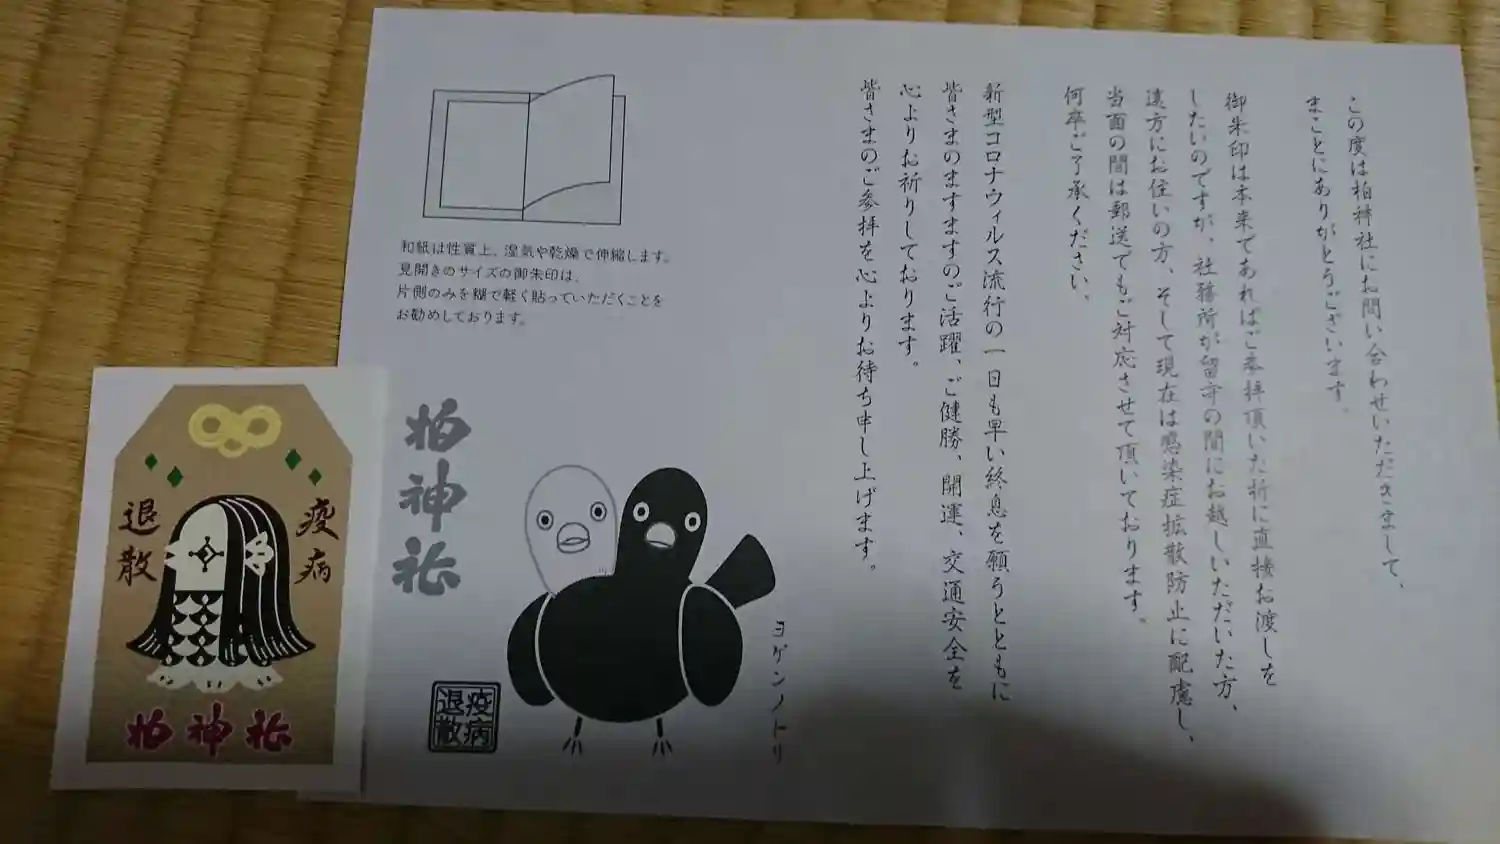 この度は柏神社にお問い合わせいただきまして、
まことにありがとうございます。
御朱印は本来であればご参拝頂いた折に直接お渡しを
したいのですが、社務所が留守の間にお越しいただいた方、
遠方にお住いの方、そして現在は感染症拡散防止に配慮し、
当面の間は郵送でもご対応させて頂いております。
何卒ご了承ください、
新型コロナウィルス流行の一日も早い終息を願うとともに
皆さまのますますのご活躍、ご健勝、開運、交通安全を
心よりお祈りしております。
皆さまのご参拝を心よりお待ち申し上げます。
和紙は性質上、湿気や乾燥で伸縮します。
見開きのサイズの御朱印は、
片側のみを糊で軽く貼っていただくことを
お勧めしております。
柏神社
ヨゲンノトリ
疫病
退散
疫病
退散
柏神社